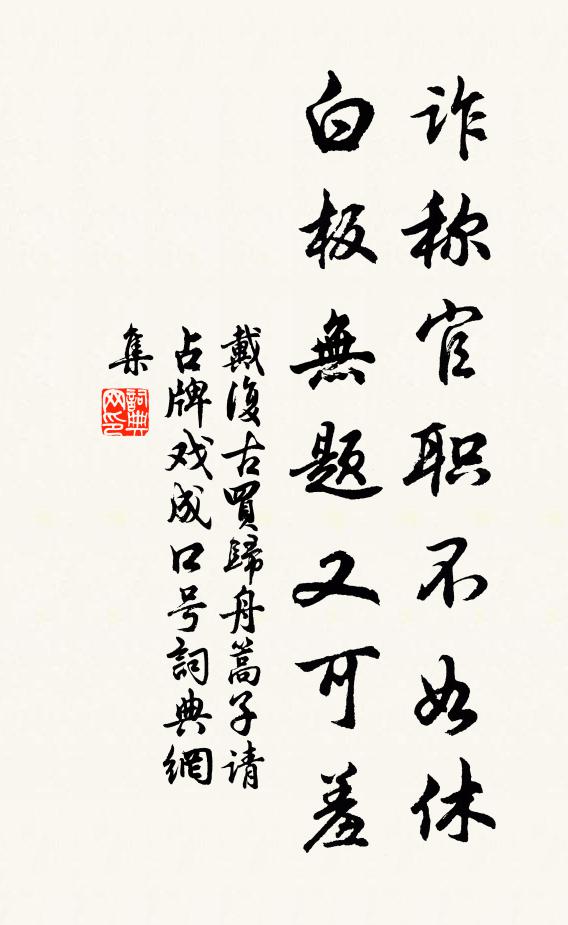 诈称官职不如休
白板無题又可羞
戴復古買歸舟篙子请
占牌戏成口号詞典網
集
詞典
网印